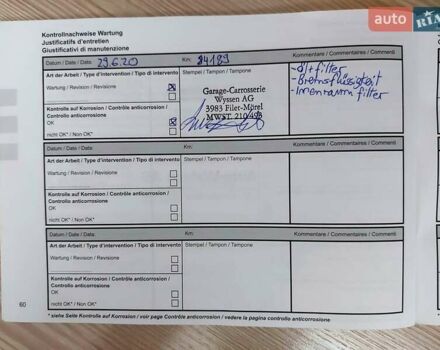 auto RIA
Kontrollnachweise Wartung
Justificatifs d'entretien
Giustificativi di manutenzione
Datum / Date / Data: 29.6.20 Km: 24189 Kommentare / Commentaires / Commenti
Art der Arbeit / Type d'intervention / Tipo di intervento Stempel / Tampon / Tampone
Wartung / Revision / Revisione
Kontrolle auf Korrosion / Contrôle anticorrosion / Controllo
anticorrosione
OK
nicht OK* / Non OK*
Garage-Carrosserie
Wyssen AG
3983 Filet-Mörel
MWST. 210/493
- öl + filter
- Bremsflüssigkeit
- Innenraum filter
Datum / Date / Data: Km: Kommentare / Commentaires / Commenti
Art der Arbeit / Type d'intervention / Tipo di intervento Stempel / Tampon / Tampone
Wartung / Revision / Revisione
Kontrolle auf Korrosion / Contrôle anticorrosion / Controllo
anticorrosione
OK
nicht OK* / Non OK*
Datum / Date / Data: Km: Kommentare / Commentaires / Commenti
Art der Arbeit / Type d'intervention / Tipo di intervento Stempel / Tampon / Tampone
Wartung / Revision / Revisione
Kontrolle auf Korrosion / Contrôle anticorrosion / Controllo
anticorrosione
OK
nicht OK* / Non OK*
60
* siehe Seite Kontrolle auf Korrosion / voir page Contrôle anticorrosion / vedere la pagina controllo anticorrosione